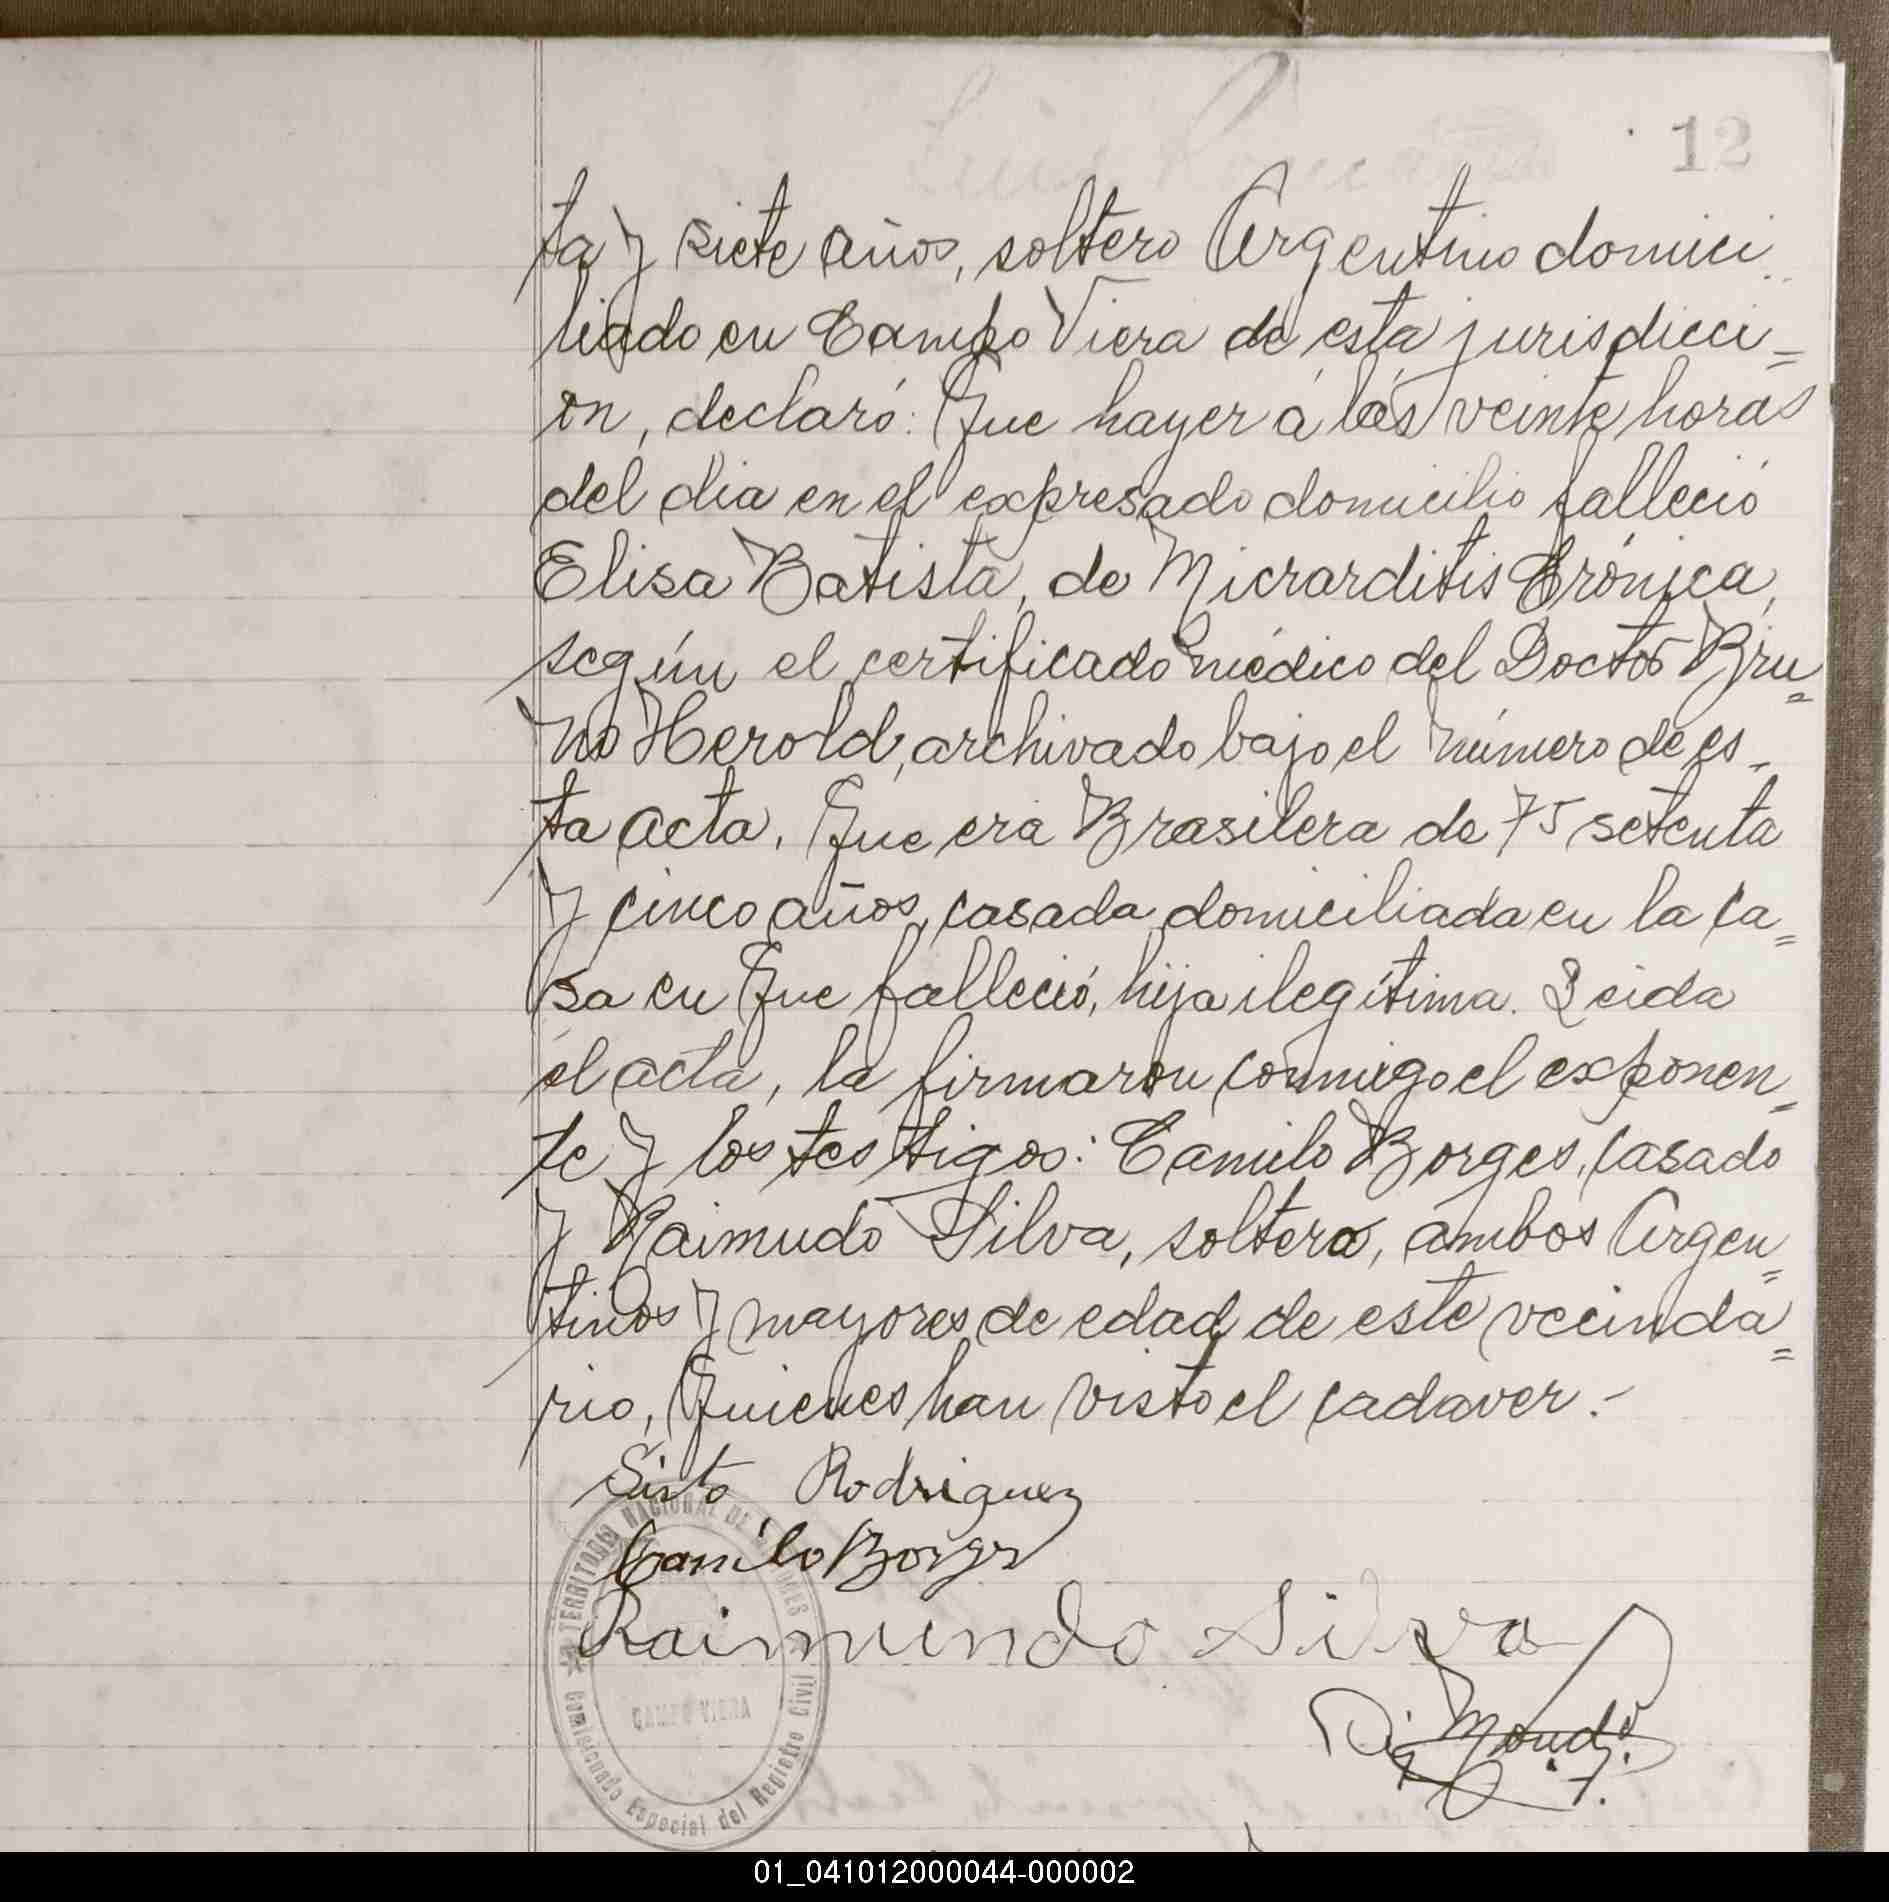 12
ta y siete años, soltero Argentino domici
liado en Campo Viera de esta jurisdicci=
on, declaró: Que hayer á las veinte horas
del dia en el expresado domicilio falleció
Elisa Batista, de Micrarditis Crónica,
según el certificado médico del Doctor Bru=
no Herold, archivado bajo el número de es-
ta acta. Que era Brasilera de 75 setenta
y cinco años, casada domiciliada en la ca=
sa en que falleció, hija ilegítima. Leida
el acta, la firmaron conmigo el exponen=
te y los testigos: Camilo Borges, casado
y Raimudo Silva, soltero, ambos Argen=
tinos y mayores de edad de este vecinda=
rio, quienes han visto el cadaver.-
Sisto Rodriguez
Camilo Borges
Raimundo Silva
TERRITORIO NACIONAL DE MISIONES
CAMPO VIERA
Comisionado Especial del Registro Civil
01_041012000044-000002